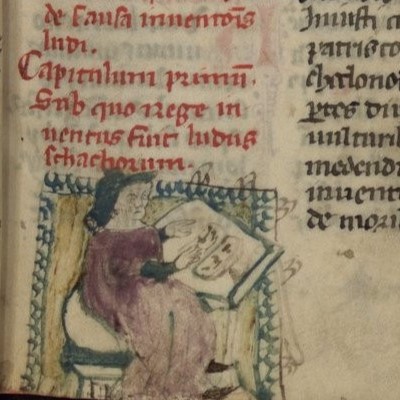 de causa inuentōis
ludi.
Capitulum primū.
Sub quo rege in
uentus fuit ludus
schachorum.
Iniusti
patris
uulturib
medendi
inuent
de mori